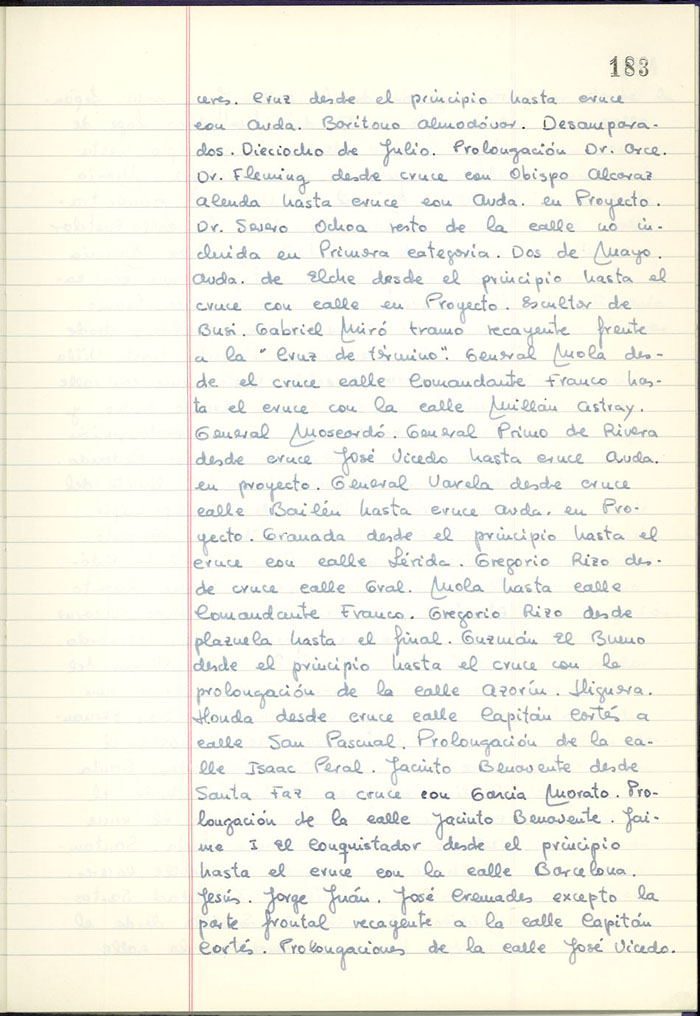 183
ceres. Cruz desde el principio hasta cruce
con Avda. Barítono Almodóvar. Desampara-
dos. Dieciocho de Julio. Prolongación Dr. Orce.
Dr. Fleming desde cruce con Obispo Alcaraz
Alenda hasta cruce con Avda. en Proyecto.
Dr. Severo Ochoa resto de la calle no in-
cluida en Primera categoría. Dos de Mayo.
Avda. de Elche desde el principio hasta el
cruce con calle en Proyecto. Escultor de
Busi. Gabriel Miró tramo recayente frente
a la "Cruz de término". General Mola des-
de el cruce calle Comandante Franco has-
ta el cruce con la calle Millán Astray.
General Moscardó. General Primo de Rivera
desde cruce José Vicedo hasta cruce Avda.
en proyecto. General Varela desde cruce
calle Bailén hasta cruce Avda. en Pro-
yecto. Granada desde el principio hasta el
cruce con calle Lérida. Gregorio Rizo des-
de cruce calle Gral. Mola hasta calle
Comandante Franco. Gregorio Rizo desde
plazuela hasta el final. Guzmán El Bueno
desde el principio hasta el cruce con la
prolongación de la calle Azorín. Higuera.
Honda desde cruce calle Capitán Cortés a
calle San Pascual. Prolongación de la ca-
lle Isaac Peral. Jacinto Benavente desde
Santa Faz a cruce con García Morato. Pro-
longación de la calle Jacinto Benavente. Jai-
me I El Conquistador desde el principio
hasta el cruce con la calle Barcelona.
Jesús. Jorge Juán. José Cremades excepto la
parte frontal recayente a la calle Capitán
Cortés. Prolongaciones de la calle José Vicedo.